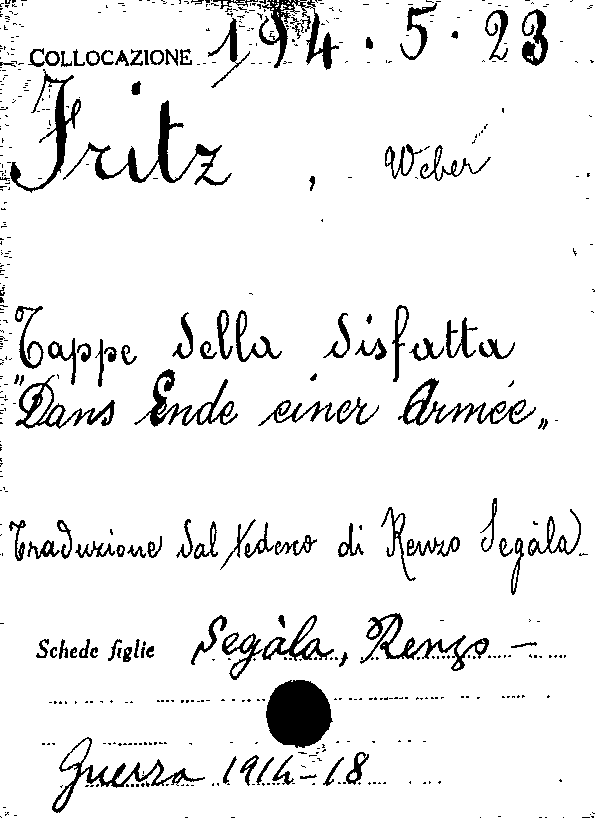 COLLOCAZIONE 194.5.23
Fritz, Weber
Tappe della disfatta
"Dans Ende einer Armée„
Traduzione dal tedesco di Renzo Segàla
Schede figlie Segàla, Renzo —
Guerra 1914-18